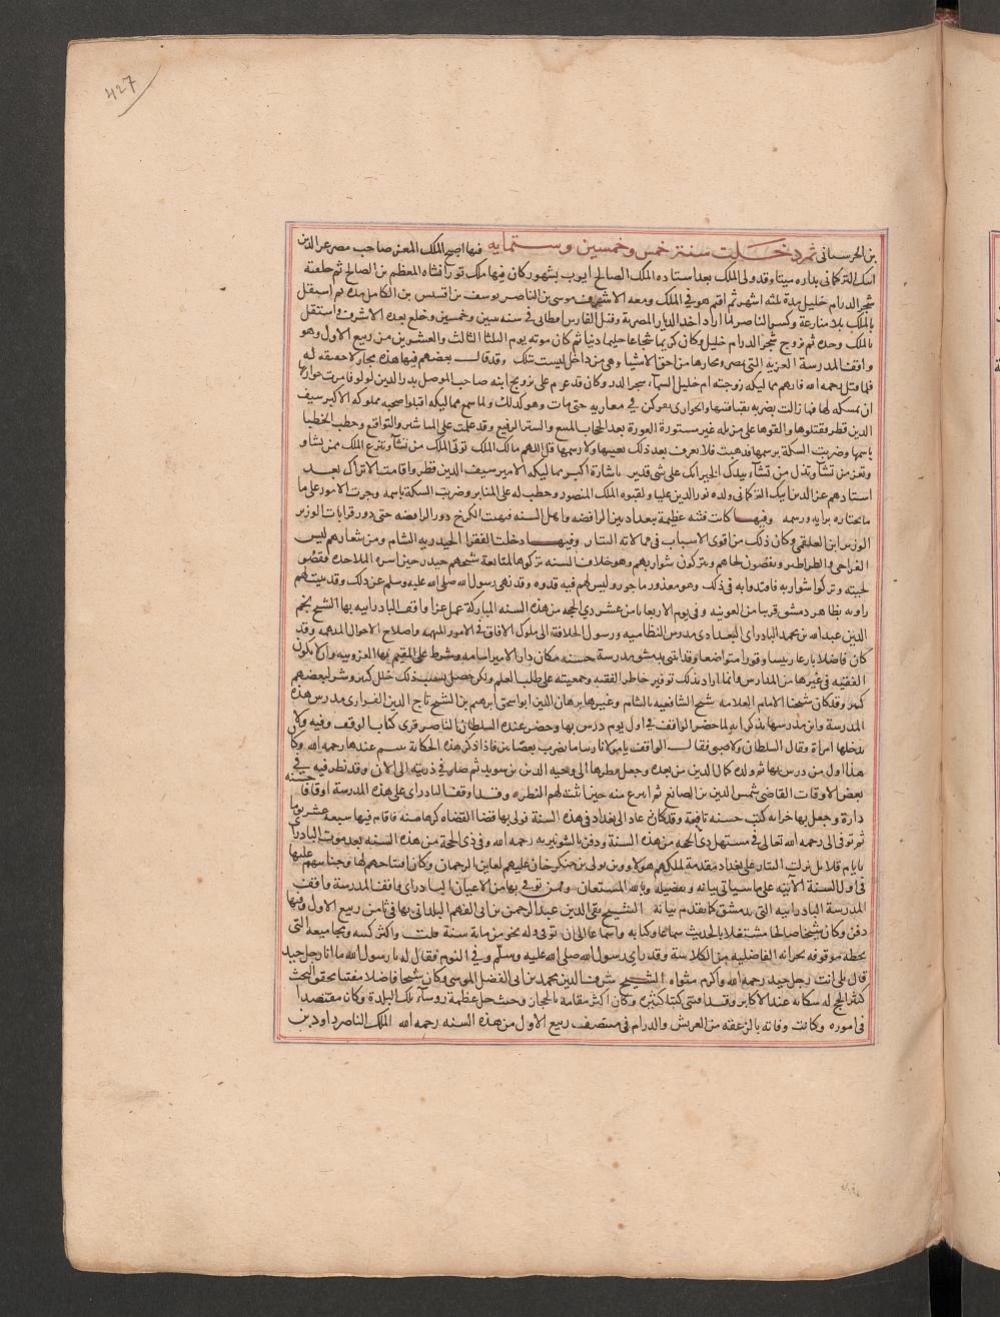 427
بن الحرستانى ثم دخلت سنة خمس وخمسين وستمايه فيها اصبح الملك المعز صاحب مصر عز الدين
ايبك التركمانى بداره ميتا وقد ولى الملك بعد استاده الملك الصالح ايوب بشهور كان فيها ملك توران شاه المعظم بن الصالح ثم خلعته
شجر الدر ام خليل مدة ثلثه اشهر ثم اقيم هو في الملك ومعه الاشرف موسى بن الناصر يوسف بن اقسيس بن الكامل مدة ثم استقل
بالملك بلا منازعة وكسر الناصر لما اراد اخذ الديار المصرية وقتل الفارس اقطاى في سنه ثنين وخمسين وخلع بعده الاشرف واستقل
بالملك وحده ثم تزوج شجر الدر ام خليل وكان كريما شجاعا حليما دينا ثم كان موته يوم الثلثا الثالث والعشرين من ربيع الاول وهو
واقف المدرسة العزيه التى بمصر ومجازها من احق الاشيا وهى من داخل ليست تلك وقد قال بعضهم فيها هذه مجاز لا حقيقه له
فلما قتل رحمه الله فاتهم مماليكه زوجته ام خليل المسماة شجر الدر وقد كان عزم على تزويج ابنه صاحب الموصل بدر الدين لولو فامرت جوارها
ان يمسكنه لها فما زالت تضربه بقباقبها والجوارى يعركن في معاريه حتى مات وهو كذلك ولما سمع مماليكه اقبلوا صحبه مملوكه الاكبر سيف
الدين قطز وقتلوها والقوها على مزبله غير مستورة العورة بعد الحجاب المنيع والستر الرفيع وقد علمت على المناشير والتواقيع وخطب الخطبا
باسمها وضربت السكة برسمها فذهبت فلا يعرف بعد ذلك بعينها ولا رسمها قل اللهم مالك الملك توتى الملك من تشآ وتنزع الملك ممن تشآ و
وتعز من تشآ وتذل من تشآ بيدك الخير انك على شى قدير باشارة اكبر مماليكه الامير سيف الدين قطز واقامت الاتراك بعد
استادهم عز الدين ايبك التركمانى ولده نور الدين عليا ولقبوه الملك المنصور وخطب له على المنابر وضربت السكة باسمه وجرت الامور على ما
ما يختاره برايه ورسمه وفيها كانت فتنه عظيمة ببغداد بين الرافضه واهل السنه فنهبت الكرخ دور الرافضه حتى دور قرابات الوزير
الوزير ابن العلقمى وكان ذلك من اقوى الاسباب في ممالاته التتار وفيها دخلت الفقرا الحيدريه الشام ومن شعارهم لبس
الفراجى والطراطير ويقصون لحاهم ويتركون شواربهم وهو خلاف السنه تركوها لمتابعة شيخهم حيدر حين اسره الملاحده فقصو
لحيته وتركوا شواربه فاقتدوا به في ذلك وهو معذور ماجور وليس لهم فيه قدوه وقد نهى رسول الله صلى الله عليه وسلم عن ذلك وقد بنيت لهم
زاويه بظاهر دمشق قريبا من العونيه وفى يوم الاربعا ثامن عشر ذى الحجه من هذه السنه المباركة عمل عزا واقف البادرائيه بها الشيخ نجم
الدين عبد الله بن محمد البادراى البغدادى مدرس النظاميه ورسول الخلافة الى ملوك الافاق في الامور المهمه واصلاح الاحوال المدلهمه وقد
كان فاضلا بارعا رييسا وقورا متواضعا وقد ابتنى بدمشق مدرسة حسنه مكان دار الامير اسامه وشرط على المقيم بها العزوبيه وان لا يكون
الفقيه في غيرها من المدارس وانما اراد بذلك توفير خاطر الفقيه وجمعيته على طلب العلم ولكن حصل بسبب ذلك خلل كبير وشر لبعضهم
كبير وقد كان شيخنا الامام العلامه شيخ الشافعيه بالشام وغيرها برهان الدين ابو اسحق ابرهيم بن الشيخ تاج الدين الفزارى مدرس هذه
المدرسة وابن مدرسها يذكر انه لما حضر الواقف في اول يوم درس بها وحضر عنده السلطان الناصر قرى كتاب الوقف وفيه ولا
تدخلها امراة فقال السلطان ولا صبى فقال الواقف يا مولانا ربنا ما يضرب بعصاتين فاذا ذكر هذه الحكاية تبسم عندها رحمه الله وكا
هذا اول من درس بها ثم ولده كمال الدين من بعده وجعل نظرها الى وجيه الدين بن سويد ثم صار في ذريته الى الان وقد نظر فيه في
بعض الاوقات القاضى شمس الدين بن الصايغ ثم انتزع منه حين اثبت لهم النظر وقد اوقف البادراى على هذه المدرسة اوقافا حسنه
دارة وجعل بها خزانه كتب حسنه نافعة وقد كان عاد الى بغداد في هذه السنة فولى بها قضا القضاه كرها منه فاقام فيها سبعة عشر يوما
ثم توفى الى رحمه الله تعالى في مستهل ذى الحجه من هذه السنة ودفن بالشونيزيه رحمه الله وفى ذى الحجة من هذه السنه بعد موت البادراى
بايام قلائل نزلت التتار على بغداد مقدمة لملكهم هولاوو بن تولى بن جنكزخان عليهم لعاين الرحمان وكان افتتاحهم لها وجنايتهم عليها
في اول السنة الآتيه على ما سياتى بيانه وتفصيله وبالله المستعان وممن توفى بها من الاعيان البادراى واقف المدرسة واقف
المدرسة البادرائيه التى بدمشق كما تقدم بيانه الشيخ تقى الدين عبد الرحمن بن ابى الفهم اليلدانى بها في ثامن ربيع الاول وفيها
دفن وكان شيخا صالحا مشتغلا بالحديث سماعا وكتابه واسماعا الى ان توفى وله نحو من ماية سنة قلت واكثر كتبه ومجاميعه التى
بخطه موقوفه بخزانه الفاضليه من الكلاسة وقد راى رسول الله صلى الله عليه وسلم في النوم فقال له يا رسول الله ما انا رجل جيد
قال بلى انت رجل جيد رحمه الله واكرم مثواه الشيخ شرف الدين محمد بن ابى الفضل المرسى وكان شيخا فاضلا مفتيا محقق البحث
كثير الحج له مكانه عند الاكابر وقد اقتنى كتبا كثيره وكان اكثر مقامه بالحجاز وحيث حل عظمه روسآء تلك البلدة وكان مقتصدا
في اموره وكانت وفاته بالزعقه من العريش والدارام فى منتصف ربيع الاول من هذه السنه رحمه الله الملك الناصر داود بن